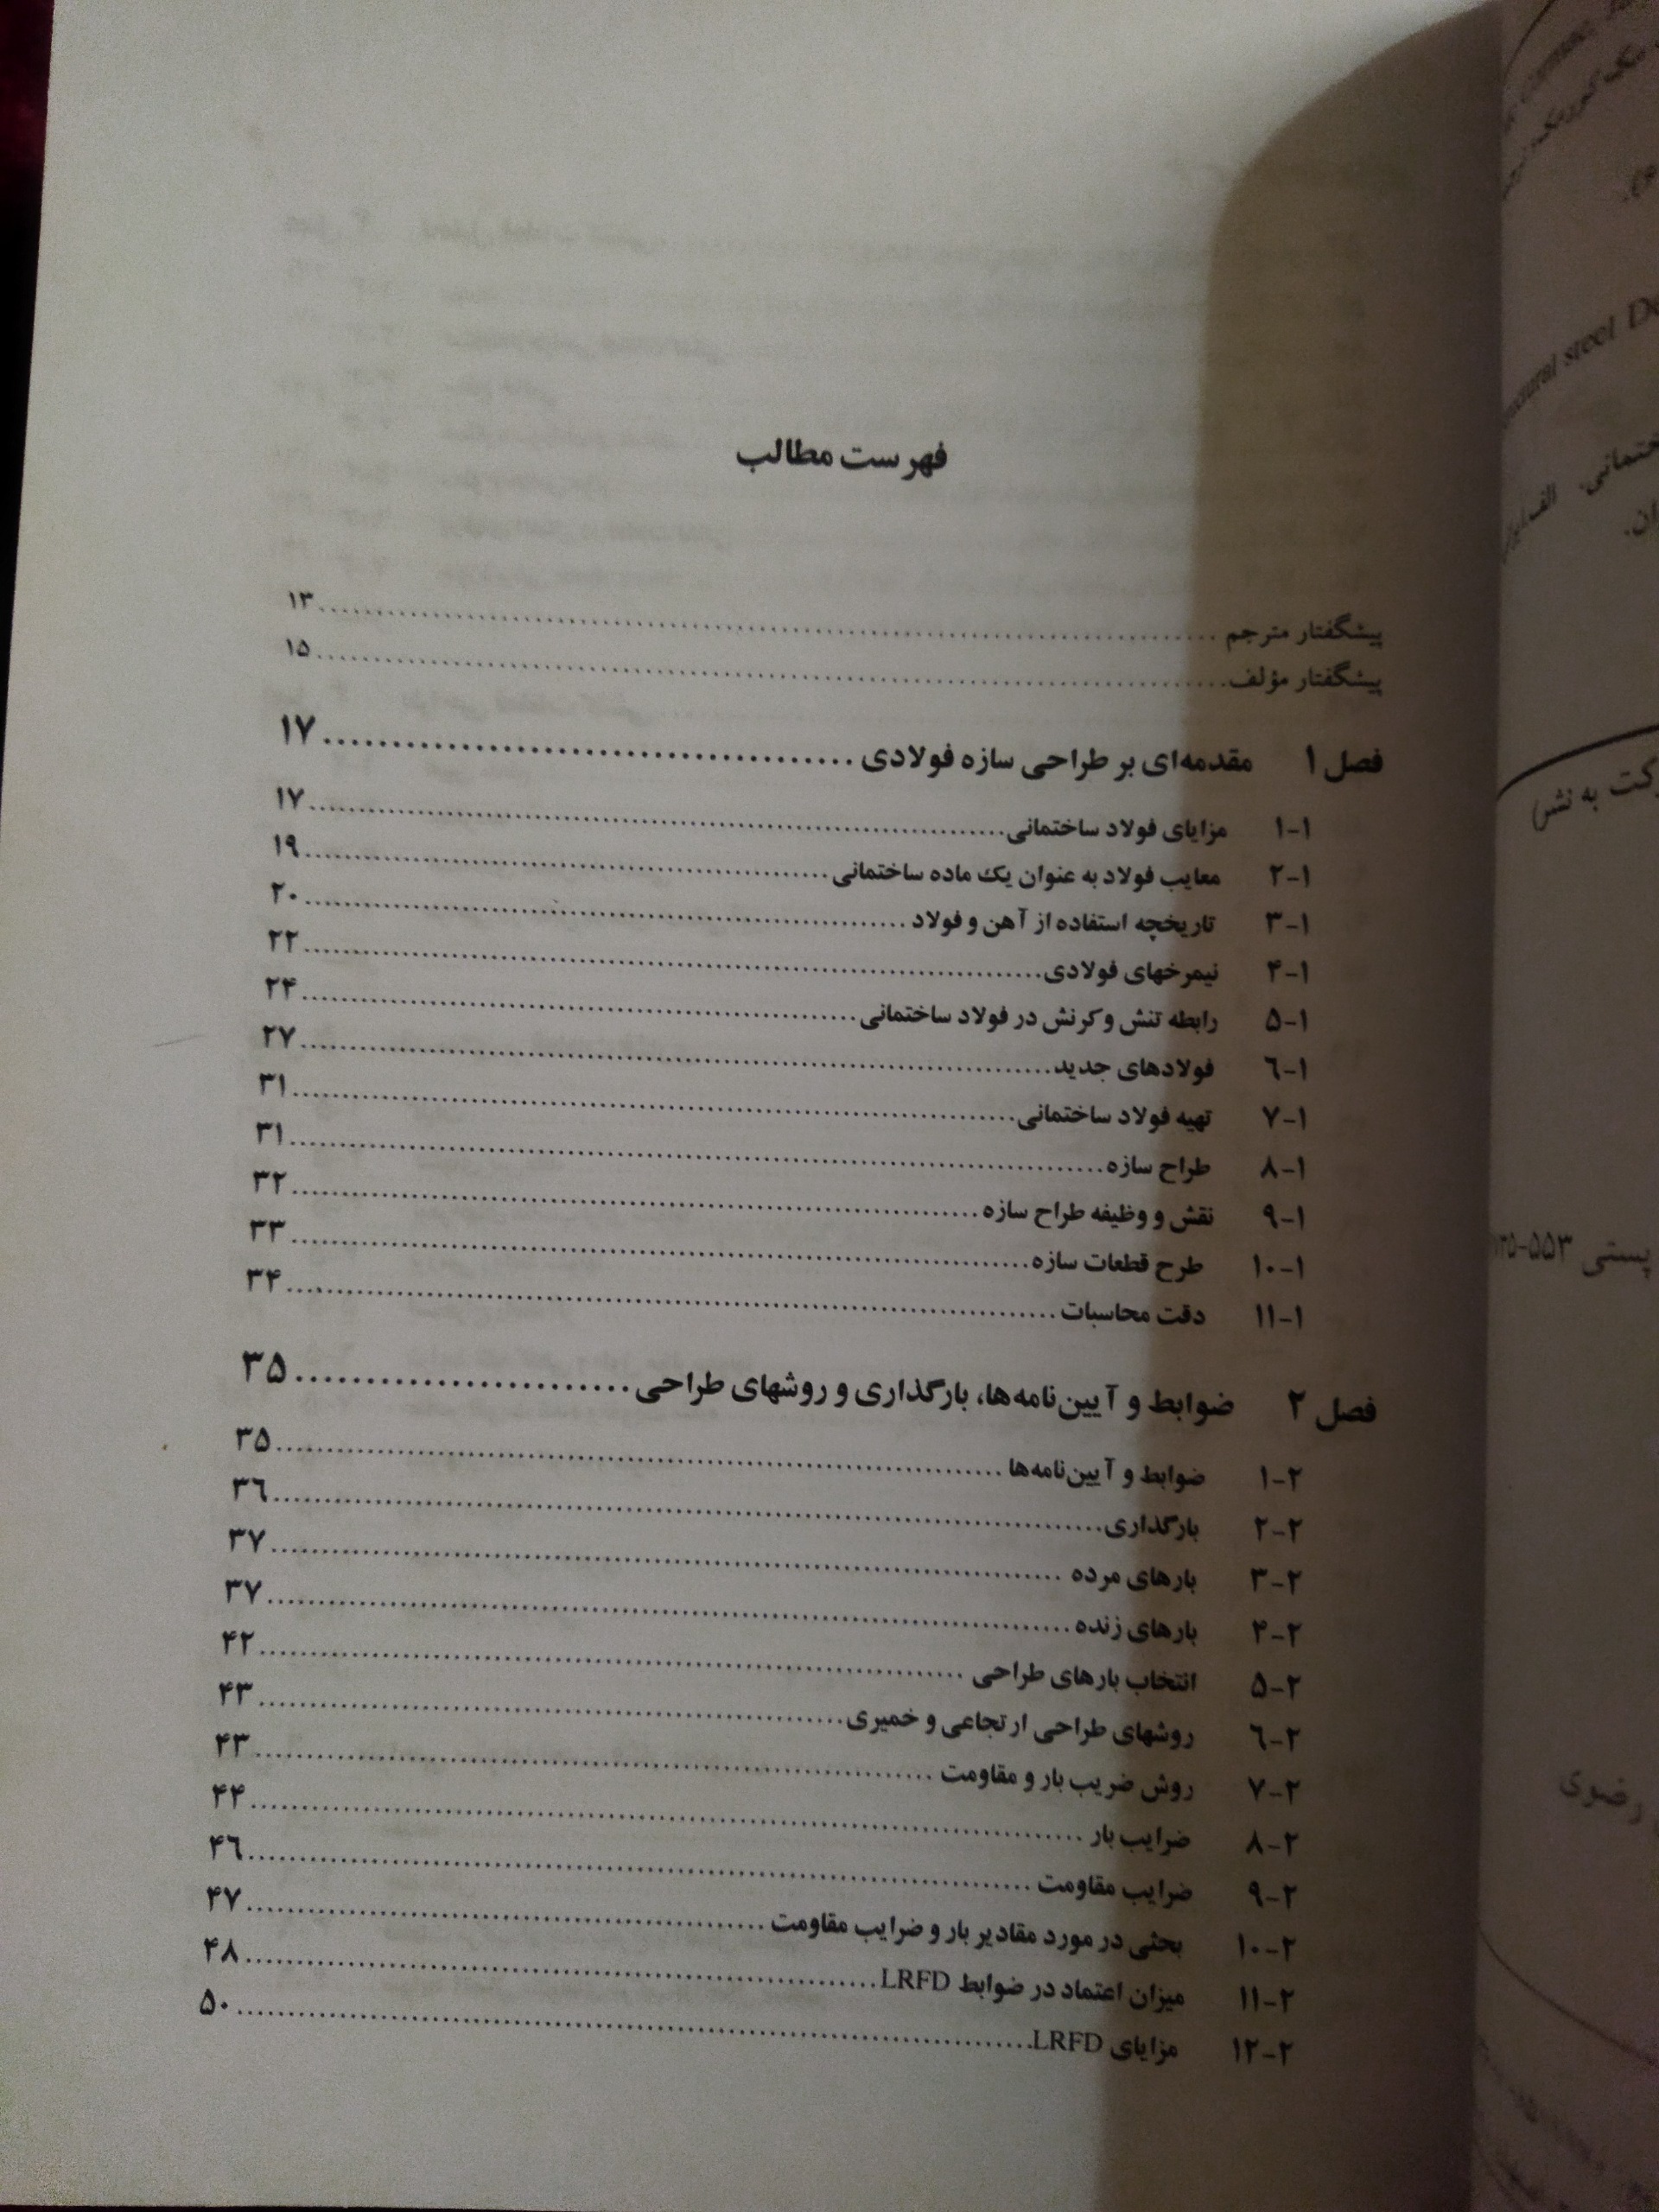 فهرست مطالب
پیشگفتار مترجم ........ ۱۳
پیشگفتار مؤلف ........ ۱۵
فصل ۱ مقدمه‌ای بر طراحی سازه فولادی ........ ۱۷
۱-۱ مزایای فولاد ساختمانی ........ ۱۷
۲-۱ معایب فولاد به عنوان یک ماده ساختمانی ........ ۱۹
۳-۱ تاریخچه استفاده از آهن و فولاد ........ ۲۰
۴-۱ نیمرخهای فولادی ........ ۲۲
۵-۱ رابطه تنش و کرنش در فولاد ساختمانی ........ ۲۴
۶-۱ فولادهای جدید ........ ۲۷
۷-۱ تهیه فولاد ساختمانی ........ ۳۱
۸-۱ طراح سازه ........ ۳۱
۹-۱ نقش و وظیفه طراح سازه ........ ۳۲
۱۰-۱ طرح قطعات سازه ........ ۳۳
۱۱-۱ دقت محاسبات ........ ۳۴
فصل ۲ ضوابط و آیین‌نامه‌ها، بارگذاری و روشهای طراحی ........ ۳۵
۱-۲ ضوابط و آیین‌نامه‌ها ........ ۳۵
۲-۲ بارگذاری ........ ۳۶
۳-۲ بارهای مرده ........ ۳۷
۴-۲ بارهای زنده ........ ۳۷
۵-۲ انتخاب بارهای طراحی ........ ۴۲
۶-۲ روشهای طراحی ارتجاعی و خمیری ........ ۴۳
۷-۲ روش ضریب بار و مقاومت ........ ۴۳
۸-۲ ضرایب بار ........ ۴۴
۹-۲ ضرایب مقاومت ........ ۴۶
۱۰-۲ بحثی در مورد مقادیر بار و ضرایب مقاومت ........ ۴۷
۱۱-۲ میزان اعتماد در ضوابط LRFD ........ ۴۸
۱۲-۲ مزایای LRFD ........ ۵۰
steel
الف
به نشر)
پستی ۵۵۳-
رضوی